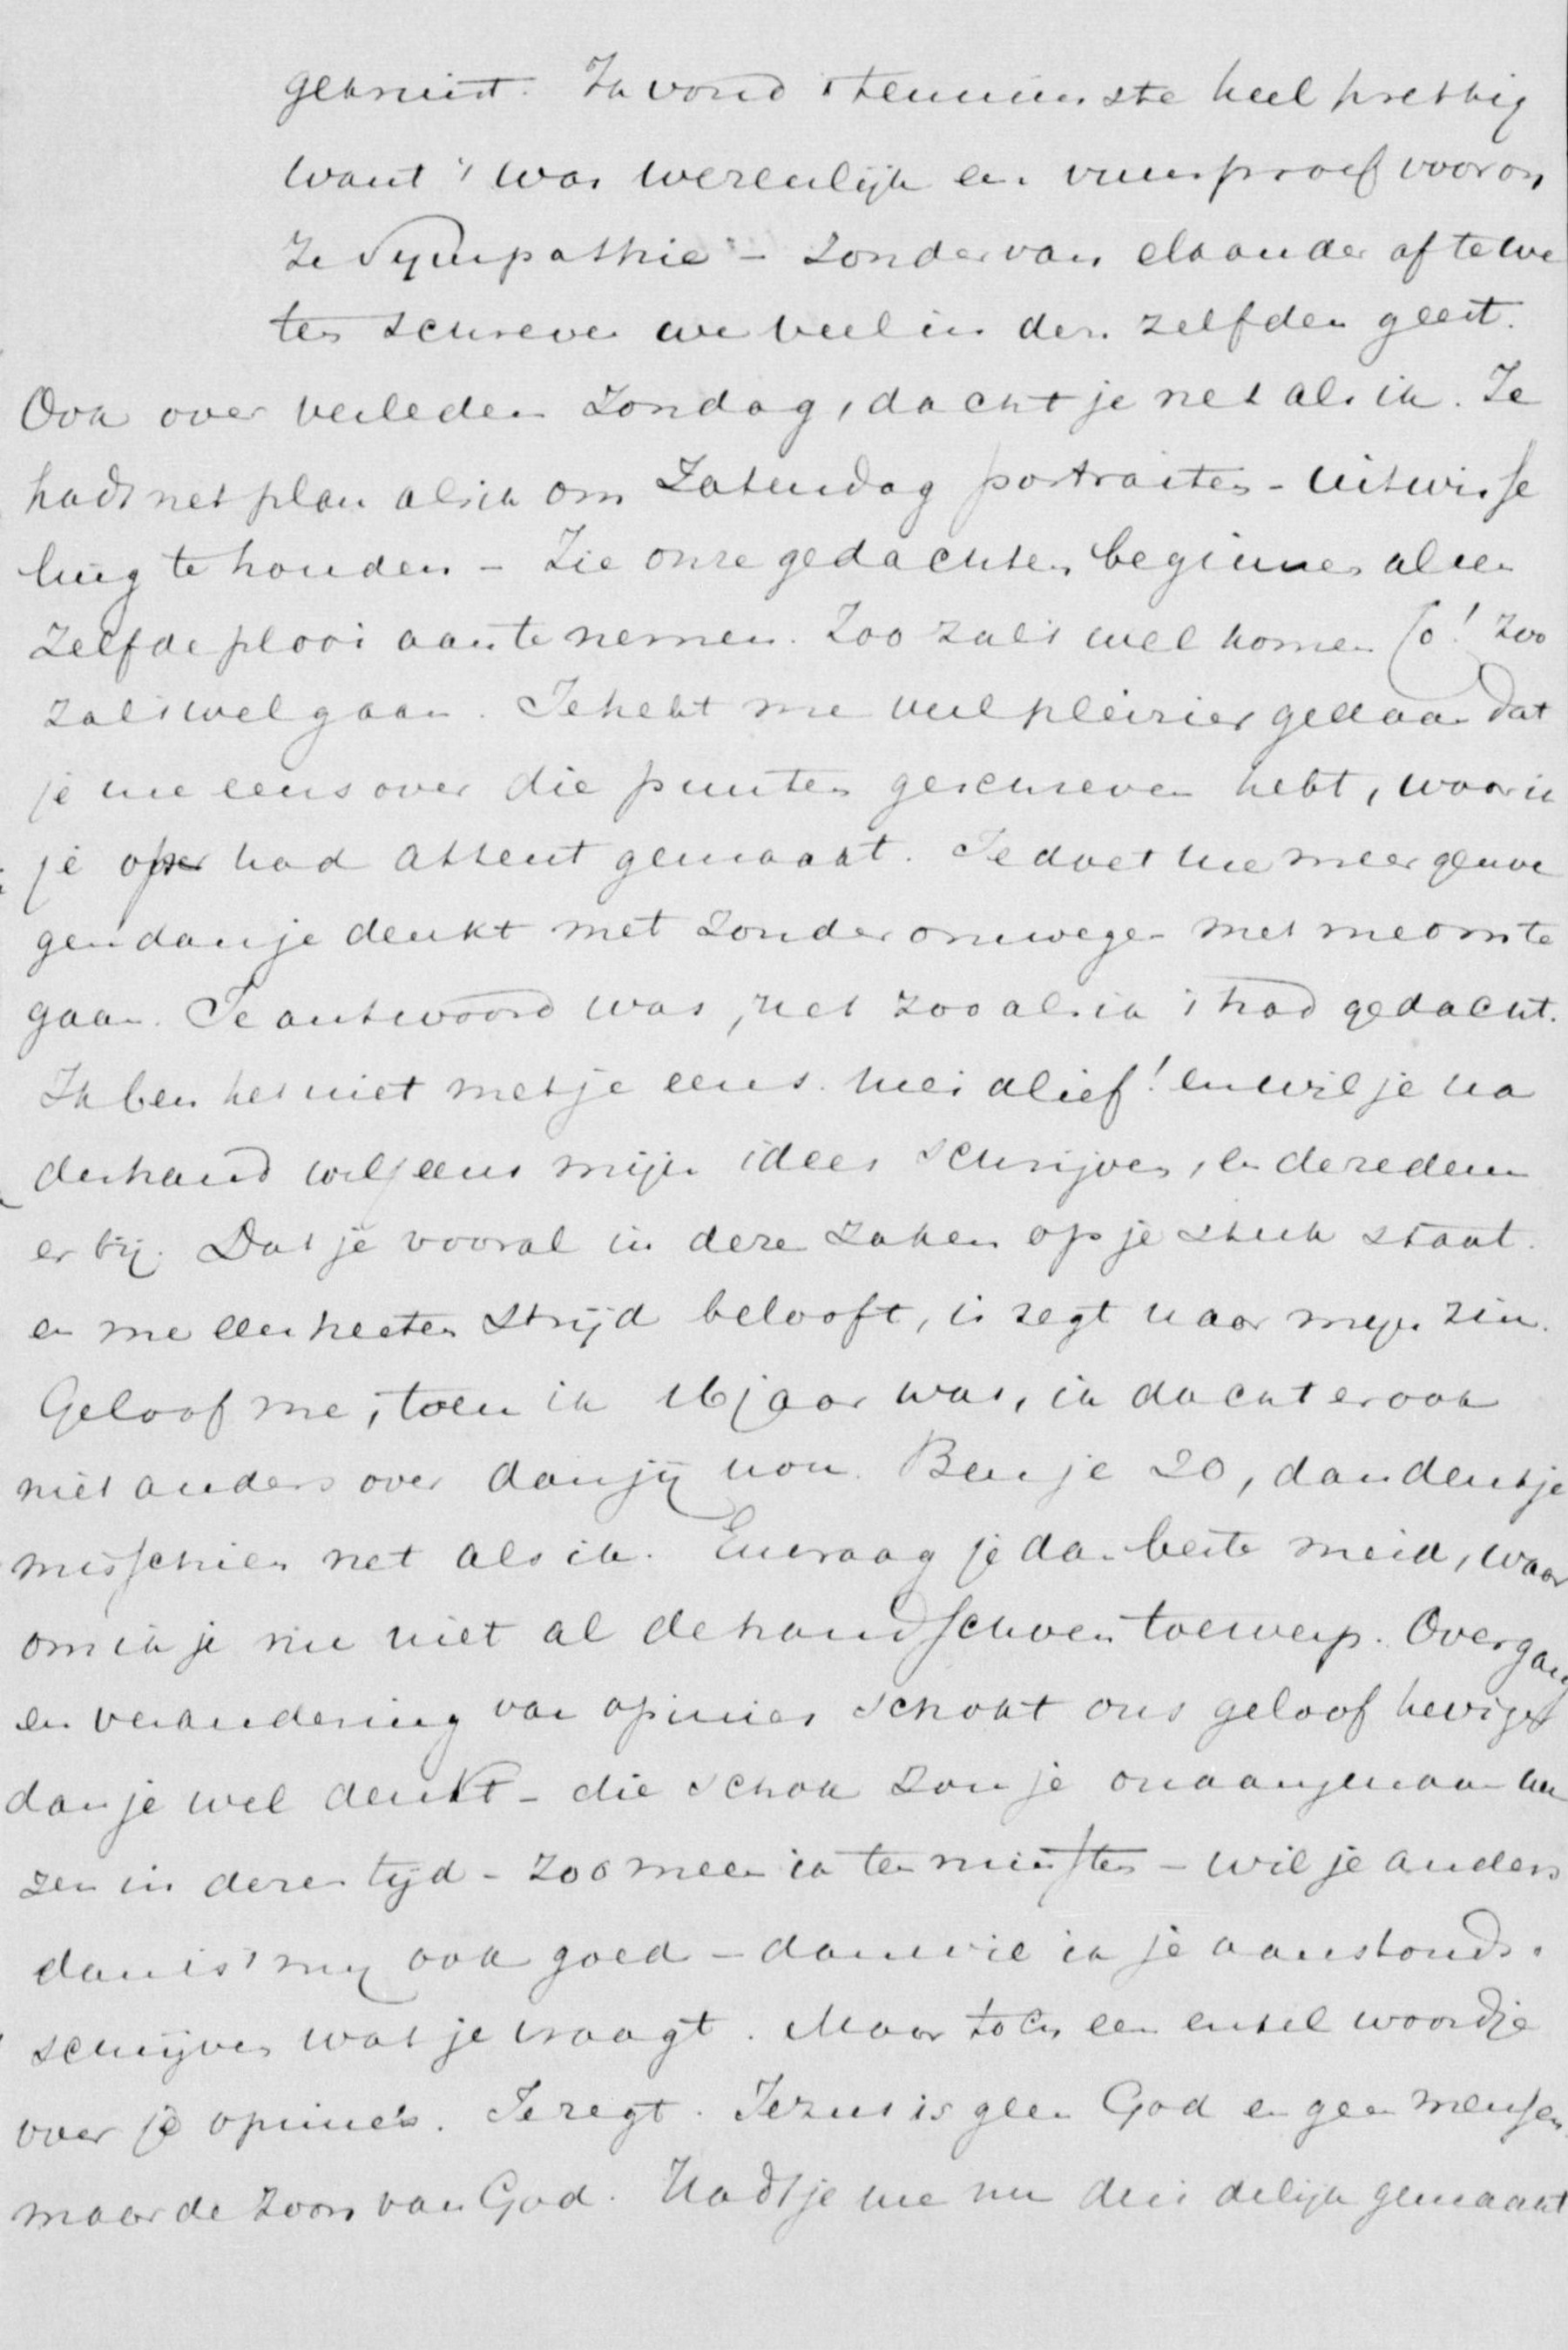 gekruist. Ik vond 't tenminste heel prettig
want 't was wezenlijk een vuurproef voor on
ze Sympathie – zonder van elkander af te we
ten schreven we veel in den zelfden geest.
Ook over verleden Zondag, dacht je net als ik. Je
hadt net plan als ik om Zaturdag portraiten-uitwisse
ling te houden – Zie onze gedachten beginnen al een
zelfde plooi aan te nemen. Zoo zal 't wel komen Jo! zoo
zal 't wel gaan. Je hebt me veel pleizier gedaan dat
je me eens over die punten geschreven hebt, waar ik
je op had attent gemaakt. Je doet me meer genoe
gen dan je denkt met zonder omwegen met me om te
gaan. Je antwoord was, net zoo als ik 't had gedacht.
Ik ben het niet met je eens. mei alief! en wil je na
derhand wel eens mijn idees schrijven, en de redenen
er bij. Dat je vooral in deze zaken op je stuk staat.
en me een heeten strijd belooft, is regt naar mijn zin.
Geloof me, toen ik 16 jaar was, ik dacht er ook
niet anders over dan jij nou. Ben je 20, dan denk je
misschien net als ik. En vraag je dan beste meid, waar
om ik je nu niet al de handschoen toewerp. Overgang
en verandering van opinies schokt ons geloof heviger
dan je wel denkt – die schok zou je onaangenaam we
zen in dezen tijd – zoo meen ik ten minsten – wil je anders
dan is 't mij ook goed – dan wil ik je aanstonds.
schrijven wat je vraagt. Maar toch een enkel woordje
over je opinie's. Je zegt. Jezus is geen God en geen mensch,
maar de zoon van God. Hadt je me nu dui delijk gemaakt